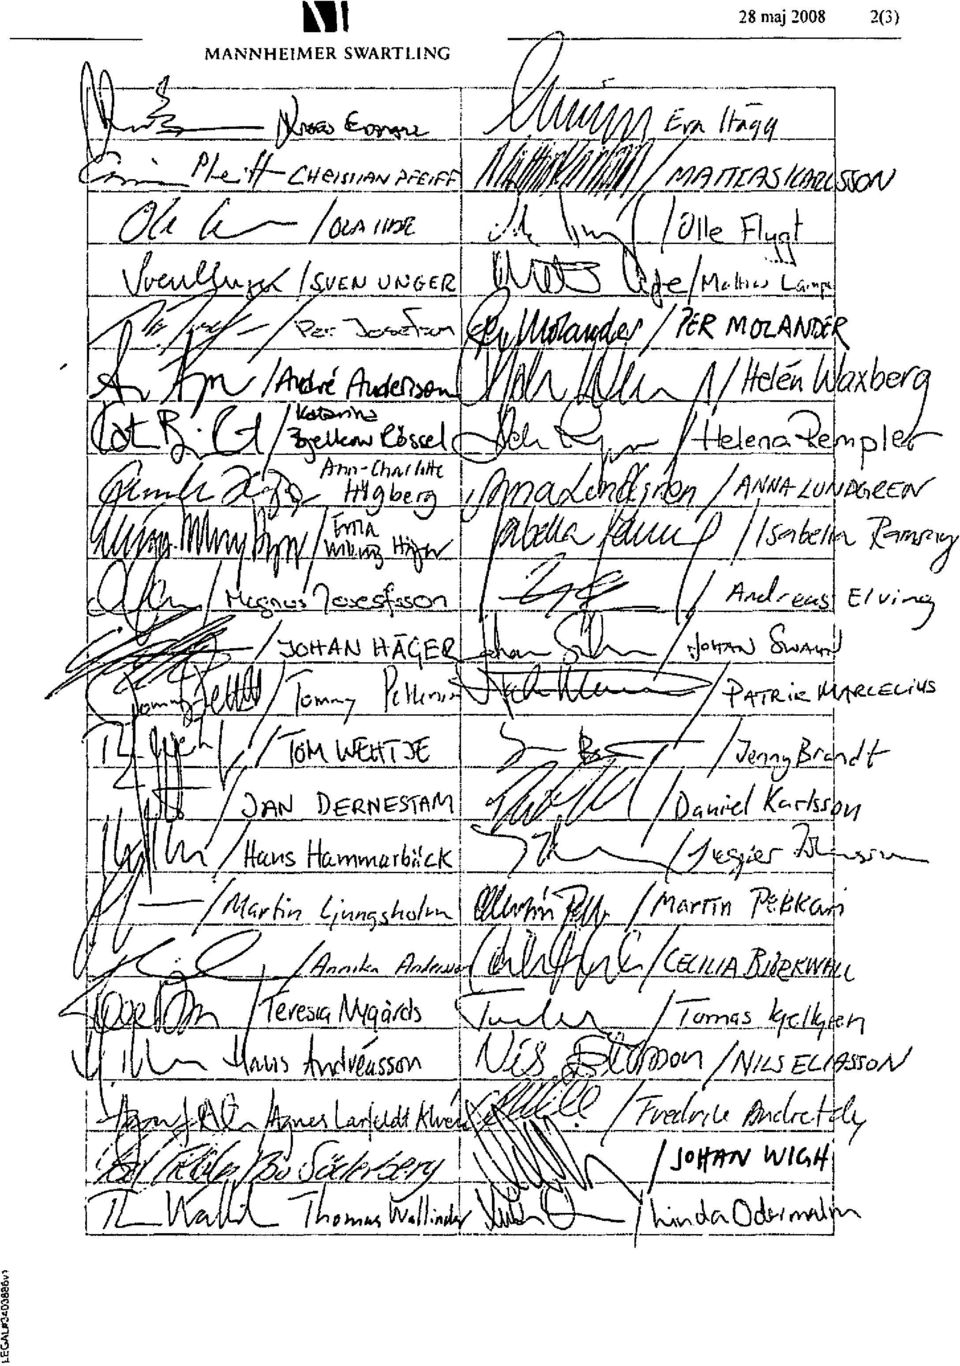 28 maj 2008 2(3)
MANNHEIMER SWARTLING
Eva Hägg
CHRISTIAN PFEIFF / MATTIAS KARLSSON
/ OLA / Olle Flygt
/ SVEN UNGER / Mattias Lampe
/ Per Josefson / PER MOLANDER
/ André Andersson / Helén Waxberg
/ Katarina
Bjelkow Rössel / Helena Rempler
Ann-Charlotte
Högberg / ANNA LUNDGREN
/ Emma
Wiking Häger / Isabella Ramsay
/ Magnus Josefsson / Andreas Elving
/ JOHAN HÄGER / JOHAN
/ Tommy Pettersson / PATRIK MARCELIUS
/ TOM WEHTJE / Jenny Brandt
/ JAN DERNESTAM / Daniel Karlsson
/ Hans Hammarbäck / Jesper Johansson
/ Martin Ljungsholm / MARTIN PEKKARI
/ Annika Andersson / CECILIA BJÖRKWALL
/ Teresia Nygårds / Tomas Kjellgren
Hans Andréasson / NILS ELIASSON
/ Agnes Larfeldt Alvén / Fredrik
/ Bo Söderberg / JOHAN WIGH
Thomas Wallinder / Linda
LEGAL#3403886v1